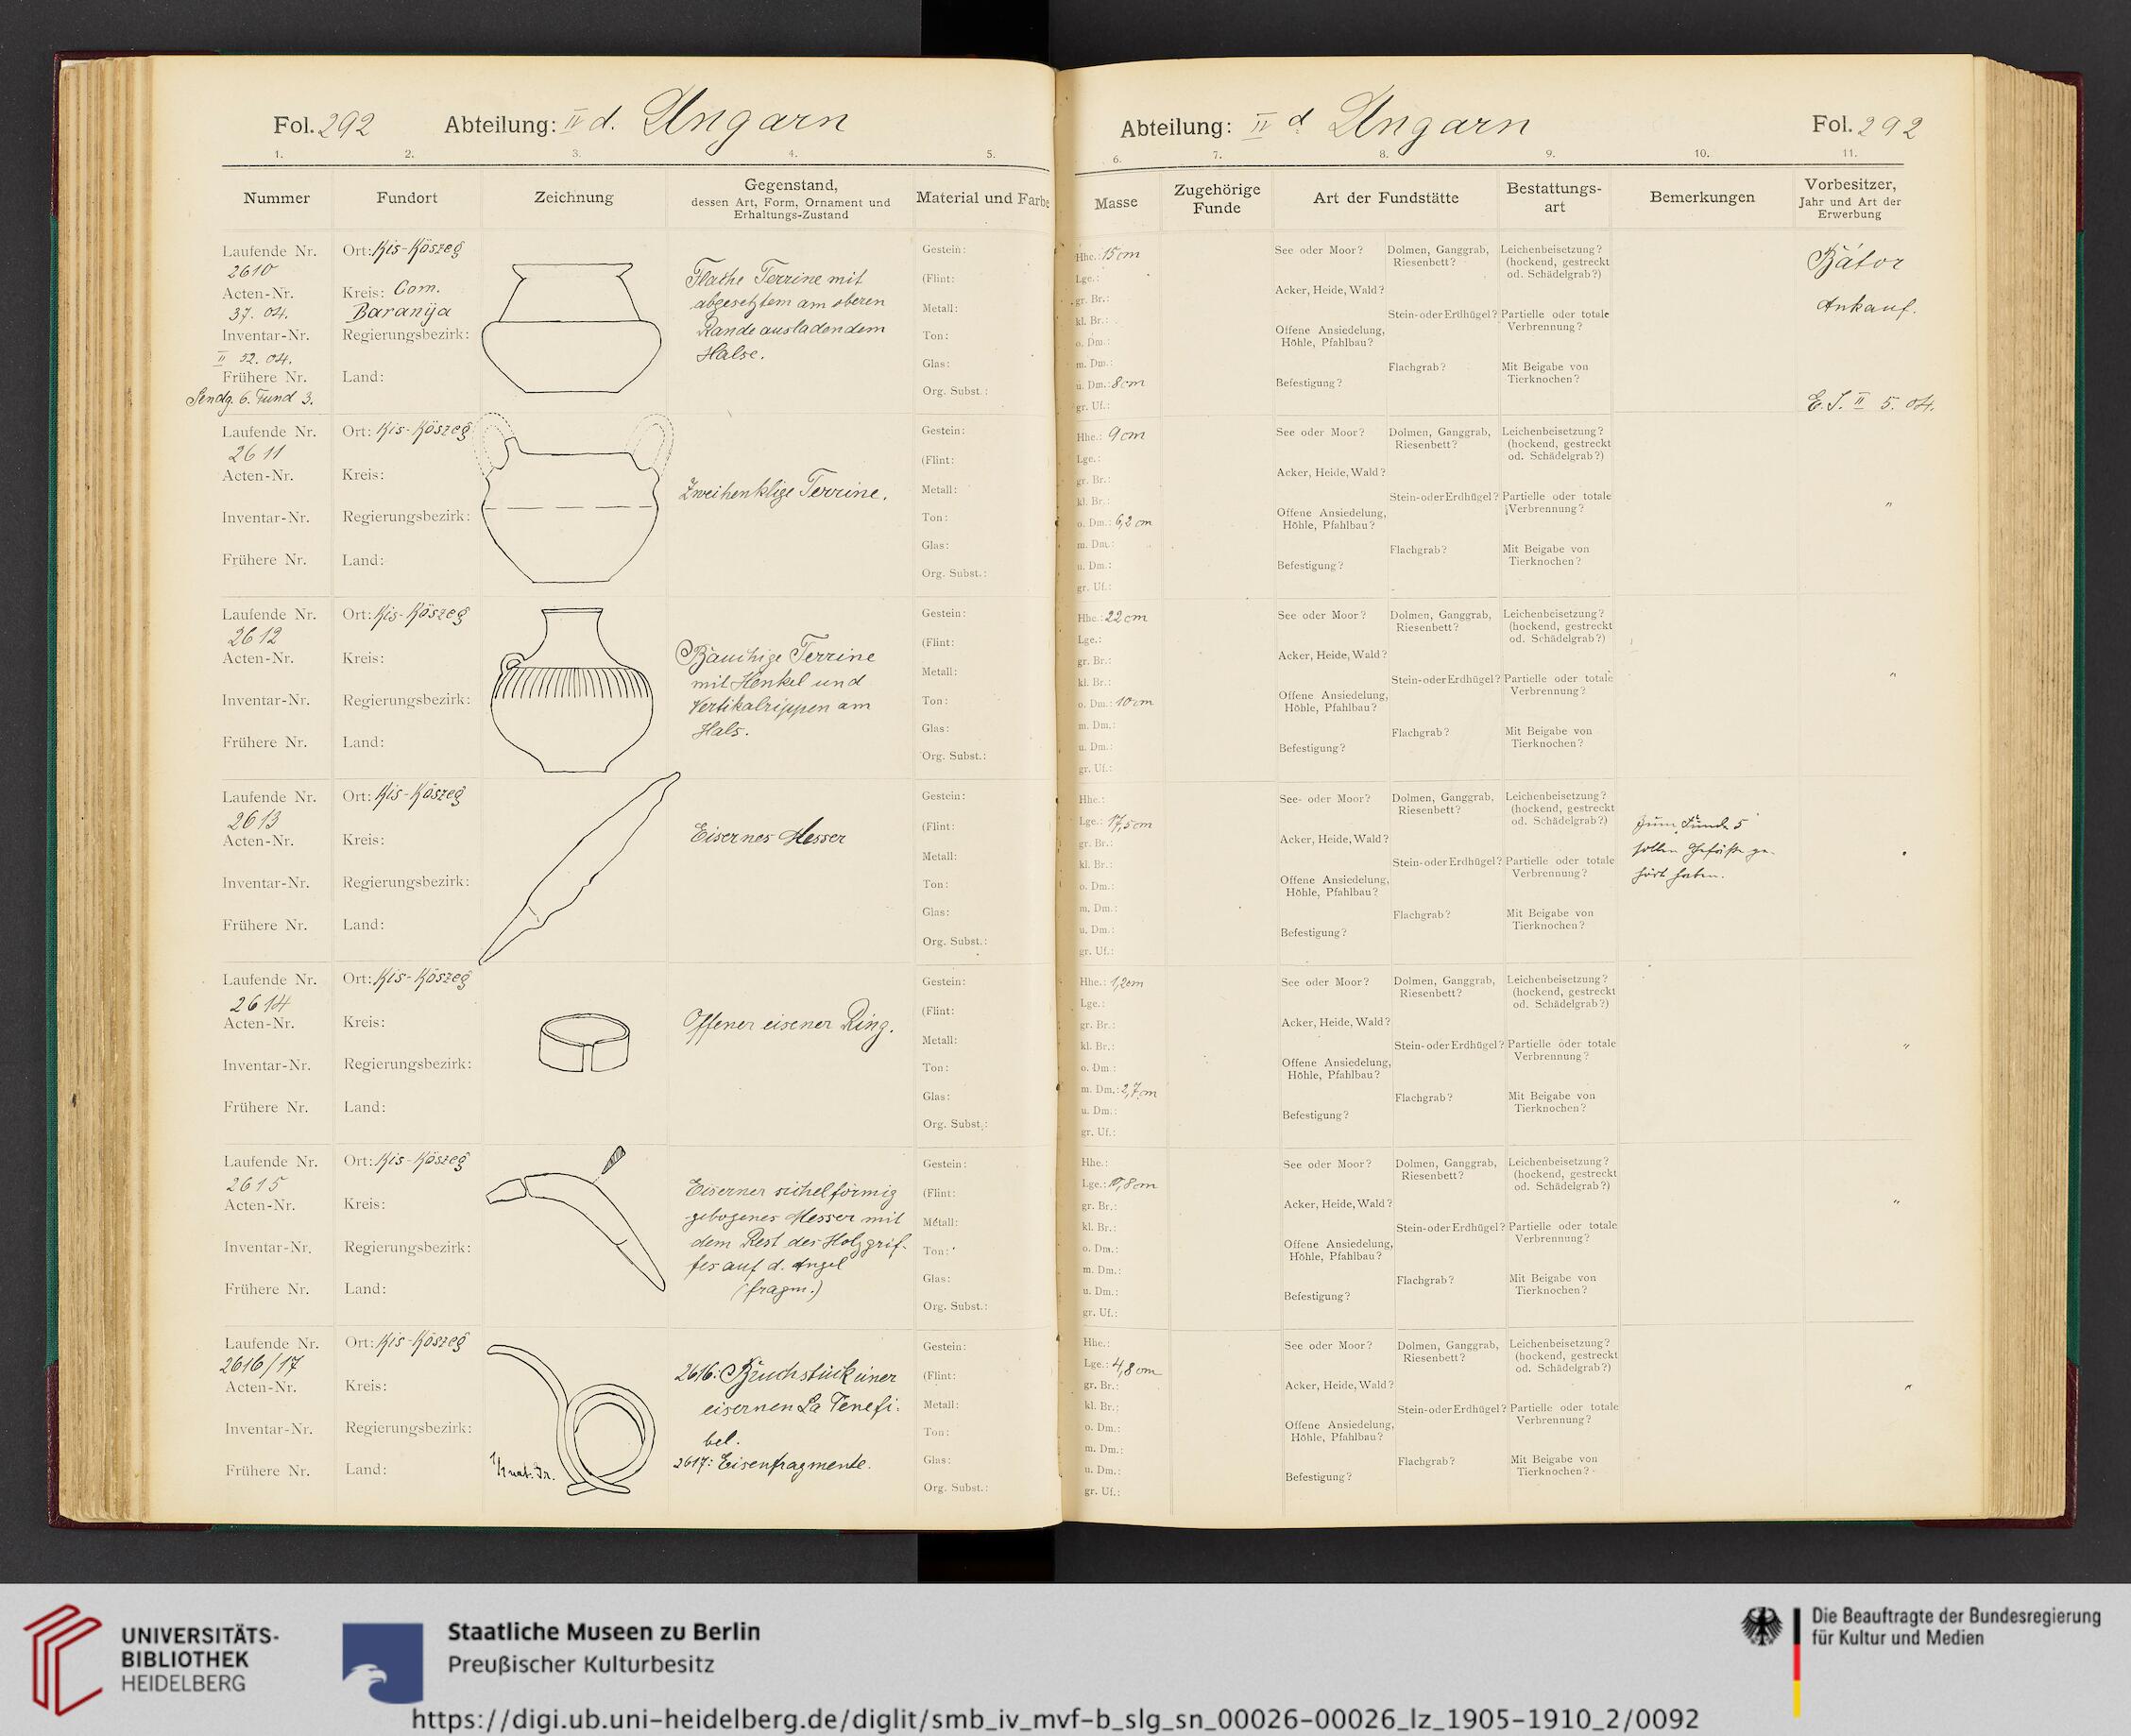 Fol. 292 Abteilung: II d. Ungarn
1. 2. 3. 4. 5.
Nummer Fundort Zeichnung Gegenstand, dessen Art, Form, Ornament und Erhaltungs-Zustand Material und Farbe
Laufende Nr. 2610
Acten-Nr. 37. 04.
Inventar-Nr. II 52. 04.
Frühere Nr. Sendg. 6. Fund 3.
Ort: Kis-Köszeg
Kreis: Com. Baranya
Regierungsbezirk:
Land:
Flache Terrine mit
abgesetztem am oberen
Rande ausladendem
Halse.
Gestein:
(Flint:
Metall:
Ton:
Glas:
Org. Subst.:
Laufende Nr. 2611
Acten-Nr.
Inventar-Nr.
Frühere Nr.
Ort: Kis-Köszeg
Kreis:
Regierungsbezirk:
Land:
Zweihenklige Terrine.
Gestein:
(Flint:
Metall:
Ton:
Glas:
Org. Subst.:
Laufende Nr. 2612
Acten-Nr.
Inventar-Nr.
Frühere Nr.
Ort: Kis-Köszeg
Kreis:
Regierungsbezirk:
Land:
Bauchige Terrine
mit Henkel und
Vertikalrippen am
Hals.
Gestein:
(Flint:
Metall:
Ton:
Glas:
Org. Subst.:
Laufende Nr. 2613
Acten-Nr.
Inventar-Nr.
Frühere Nr.
Ort: Kis-Köszeg
Kreis:
Regierungsbezirk:
Land:
Eisernes Messer
Gestein:
(Flint:
Metall:
Ton:
Glas:
Org. Subst.:
Laufende Nr. 2614
Acten-Nr.
Inventar-Nr.
Frühere Nr.
Ort: Kis-Köszeg
Kreis:
Regierungsbezirk:
Land:
Offener eisener Ring.
Gestein:
(Flint:
Metall:
Ton:
Glas:
Org. Subst.:
Laufende Nr. 2615
Acten-Nr.
Inventar-Nr.
Frühere Nr.
Ort: Kis-Köszeg
Kreis:
Regierungsbezirk:
Land:
Eiserner sichelförmig
gebogenes Messer mit
dem Rest des Holzgrif-
fes auf d. Angel
(fragm.)
Gestein:
(Flint:
Metall:
Ton:
Glas:
Org. Subst.:
Laufende Nr. 2616/17
Acten-Nr.
Inventar-Nr.
Frühere Nr.
Ort: Kis-Köszeg
Kreis:
Regierungsbezirk:
Land:
1/1 nat. Gr.
2616: Bruchstück einer
eisernen La Tenefi-
bel.
2617: Eisenfragmente.
Gestein:
(Flint:
Metall:
Ton:
Glas:
Org. Subst.:
Abteilung: II d. Ungarn Fol. 292
6. 7. 8. 9. 10. 11.
Masse Zugehörige Funde Art der Fundstätte Bestattungs-art Bemerkungen Vorbesitzer, Jahr und Art der Erwerbung
Hhe.: 15 cm
Lge.:
gr. Br.:
kl. Br.:
o. Dm.:
m. Dm.:
u. Dm.: 8 cm
gr. Uf.:
See oder Moor?
Acker, Heide, Wald?
Offene Ansiedelung, Höhle, Pfahlbau?
Befestigung?
Dolmen, Ganggrab, Riesenbett?
Stein- oder Erdhügel?
Flachgrab?
Leichenbeisetzung? (hockend, gestreckt od. Schädelgrab?)
Partielle oder totale Verbrennung?
Mit Beigabe von Tierknochen?
Bátor
Ankauf.
E. J. II 5. 04.
Hhe.: 9 cm
Lge.:
gr. Br.:
kl. Br.:
o. Dm.: 6,2 cm
m. Dm.:
u. Dm.:
gr. Uf.:
See oder Moor?
Acker, Heide, Wald?
Offene Ansiedelung, Höhle, Pfahlbau?
Befestigung?
Dolmen, Ganggrab, Riesenbett?
Stein- oder Erdhügel?
Flachgrab?
Leichenbeisetzung? (hockend, gestreckt od. Schädelgrab?)
Partielle oder totale Verbrennung?
Mit Beigabe von Tierknochen?
"
Hhe.: 22 cm
Lge.:
gr. Br.:
kl. Br.:
o. Dm.: 10 cm
m. Dm.:
u. Dm.:
gr. Uf.:
See oder Moor?
Acker, Heide, Wald?
Offene Ansiedelung, Höhle, Pfahlbau?
Befestigung?
Dolmen, Ganggrab, Riesenbett?
Stein- oder Erdhügel?
Flachgrab?
Leichenbeisetzung? (hockend, gestreckt od. Schädelgrab?)
Partielle oder totale Verbrennung?
Mit Beigabe von Tierknochen?
"
Hhe.:
Lge.: 17,5 cm
gr. Br.:
kl. Br.:
o. Dm.:
m. Dm.:
u. Dm.:
gr. Uf.:
See oder Moor?
Acker, Heide, Wald?
Offene Ansiedelung, Höhle, Pfahlbau?
Befestigung?
Dolmen, Ganggrab, Riesenbett?
Stein- oder Erdhügel?
Flachgrab?
Leichenbeisetzung? (hockend, gestreckt od. Schädelgrab?)
Partielle oder totale Verbrennung?
Mit Beigabe von Tierknochen?
Zum Funde 5
sollen Gefäße ge-
hört haben.
Hhe.: 1,2 cm
Lge.:
gr. Br.:
kl. Br.:
o. Dm.:
m. Dm.: 2,7 cm
u. Dm.:
gr. Uf.:
See oder Moor?
Acker, Heide, Wald?
Offene Ansiedelung, Höhle, Pfahlbau?
Befestigung?
Dolmen, Ganggrab, Riesenbett?
Stein- oder Erdhügel?
Flachgrab?
Leichenbeisetzung? (hockend, gestreckt od. Schädelgrab?)
Partielle oder totale Verbrennung?
Mit Beigabe von Tierknochen?
"
Hhe.:
Lge.:
gr. Br.:
kl. Br.:
o. Dm.:
m. Dm.:
u. Dm.:
gr. Uf.:
See oder Moor?
Acker, Heide, Wald?
Offene Ansiedelung, Höhle, Pfahlbau?
Befestigung?
Dolmen, Ganggrab, Riesenbett?
Stein- oder Erdhügel?
Flachgrab?
Leichenbeisetzung? (hockend, gestreckt od. Schädelgrab?)
Partielle oder totale Verbrennung?
Mit Beigabe von Tierknochen?
"
Hhe.:
Lge.: 4,8 cm
gr. Br.:
kl. Br.:
o. Dm.:
m. Dm.:
u. Dm.:
gr. Uf.:
See oder Moor?
Acker, Heide, Wald?
Offene Ansiedelung, Höhle, Pfahlbau?
Befestigung?
Dolmen, Ganggrab, Riesenbett?
Stein- oder Erdhügel?
Flachgrab?
Leichenbeisetzung? (hockend, gestreckt od. Schädelgrab?)
Partielle oder totale Verbrennung?
Mit Beigabe von Tierknochen?
"
UNIVERSITÄTS-
BIBLIOTHEK
HEIDELBERG
Staatliche Museen zu Berlin
Preußischer Kulturbesitz
Die Beauftragte der Bundesregierung
für Kultur und Medien
https://digi.ub.uni-heidelberg.de/diglit/smb_iv_mvf-b_slg_sn_00026-00026_lz_1905-1910_2/0092